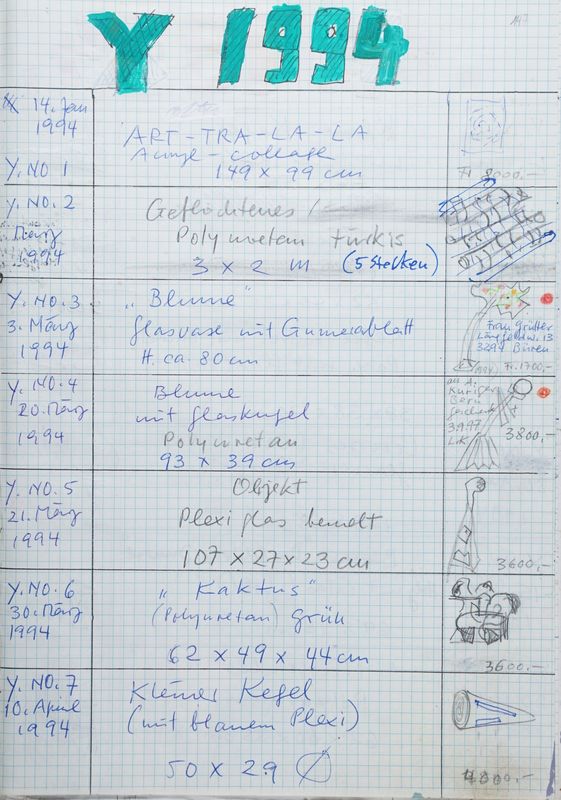 147
Y 1994
14. Jan
1994
Y. NO 1
ART-TRA-LA-LA
collage
149 x 99 cm
Fr. 8000.-
Y. NO. 2
März
1994
Geflochtenes
Polyuretan türkis
3 x 2 m (5 Stelken)
Y. NO. 3
3. März
1994
„Blume"
Glasvase mit Gummiblatt
H. ca. 80 cm
Frau Grütter
13
3294 Büren
Fr. 1700.-
Y. NO. 4
20. März
1994
Blume
mit Glaskugel
Polyuretan
93 x 39 cm
an A.
Kuriger
3.9.97
3800.-
Y. NO. 5
21. März
1994
Objekt
Plexiglas bemalt
107 x 27 x 23 cm
3600.-
Y. NO. 6
30. März
1994
„Kaktus"
(Polyuretan) grün
62 x 49 x 44 cm
3600.-
Y. NO. 7
10. April
1994
Kleiner Kegel
(mit blauem Plexi)
50 x 29 Ø
4800.-